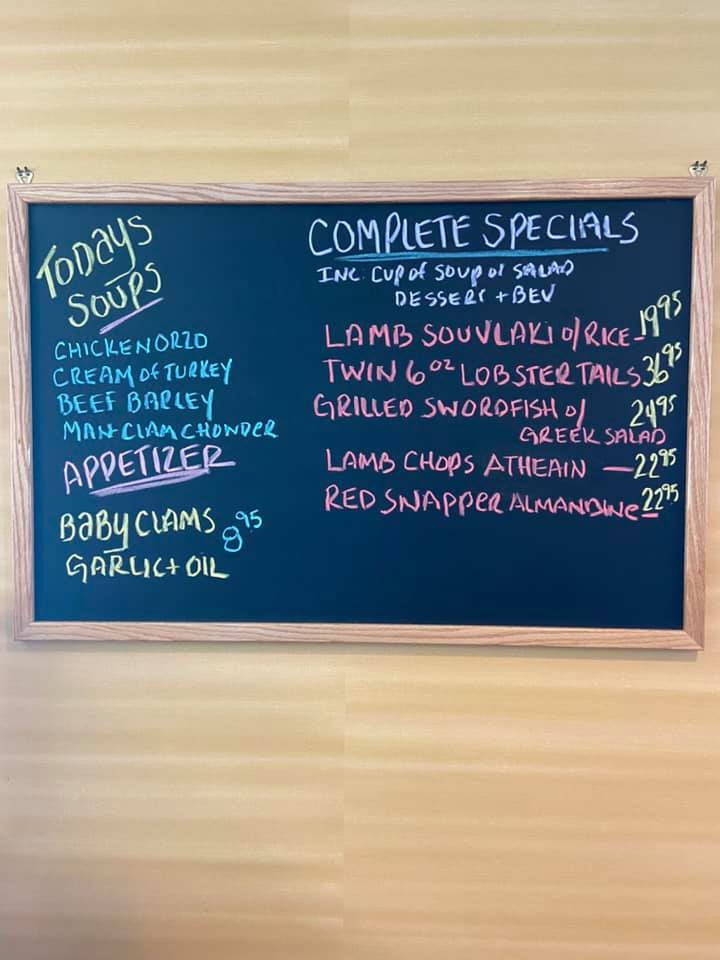 TODAYS
SOUPS
CHICKEN ORZO
CREAM OF TURKEY
BEEF BARLEY
MAN-CLAM CHONDER
APPETIZER
BABY CLAMS 8.95
GARLIC + OIL
COMPLETE SPECIALS
INC. CUP OF SOUP OR SALAD
DESSERT + BEV
LAMB SOUVLAKI O/RICE - 19.95
TWIN 6 OZ LOBSTER TAILS 36.95
GRILLED SWORDFISH O/ 24.95
GREEK SALAD
LAMB CHOPS ATHEAIN — 22.95
RED SNAPPER ALMANDINE 22.95